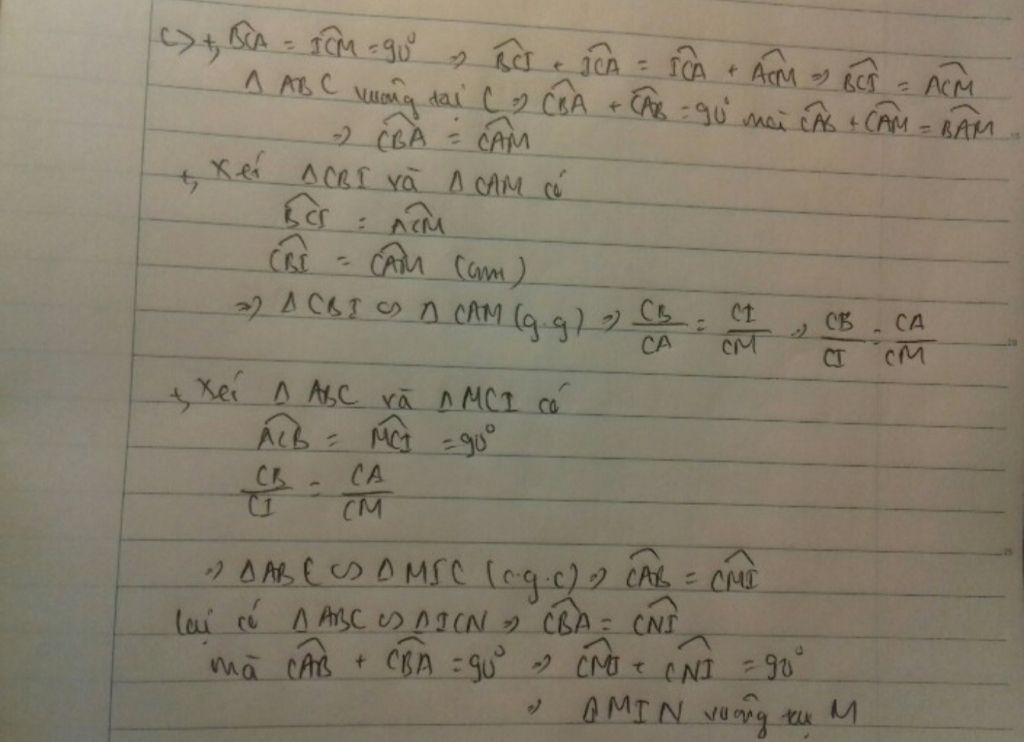 c) +, $\widehat{BCA} = \widehat{ICM} = 90°$ ⇒ $\widehat{BCI} + \widehat{ICA} = \widehat{ICA} + \widehat{ACM}$ ⇒ $\widehat{BCI} = \widehat{ACM}$
Δ ABC vuông tại C ⇒ $\widehat{CBA} + \widehat{CAB} = 90°$ mà $\widehat{CAB} + \widehat{CAM} = \widehat{BAM}$
⇒ $\widehat{CBA} = \widehat{CAM}$
+, Xét Δ CBI và Δ CAM có
$\widehat{BCI} = \widehat{ACM}$
$\widehat{CBI} = \widehat{CAM}$ (cm)
⇒ Δ CBI ∽ Δ CAM (g.g) ⇒ $\frac{CB}{CA} = \frac{CI}{CM}$ ⇒ $\frac{CB}{CI} = \frac{CA}{CM}$
+, Xét Δ ABC và Δ MCI có
$\widehat{ACB} = \widehat{MCI} = 90°$
$\frac{CB}{CI} = \frac{CA}{CM}$
⇒ Δ ABC ∽ Δ MIC (c.g.c) ⇒ $\widehat{CAB} = \widehat{CMI}$
lại có Δ ABC ∽ Δ ICN ⇒ $\widehat{CBA} = \widehat{CNI}$
mà $\widehat{CAB} + \widehat{CBA} = 90°$ ⇒ $\widehat{CMI} + \widehat{CNI} = 90°$
⇒ Δ MIN vuông tại M